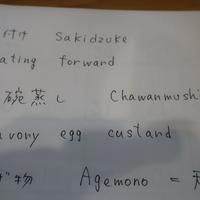 付け Sakidzuke
ating forward
碗蒸し Chawanmushi
vory egg custard
げ物 Agemono =